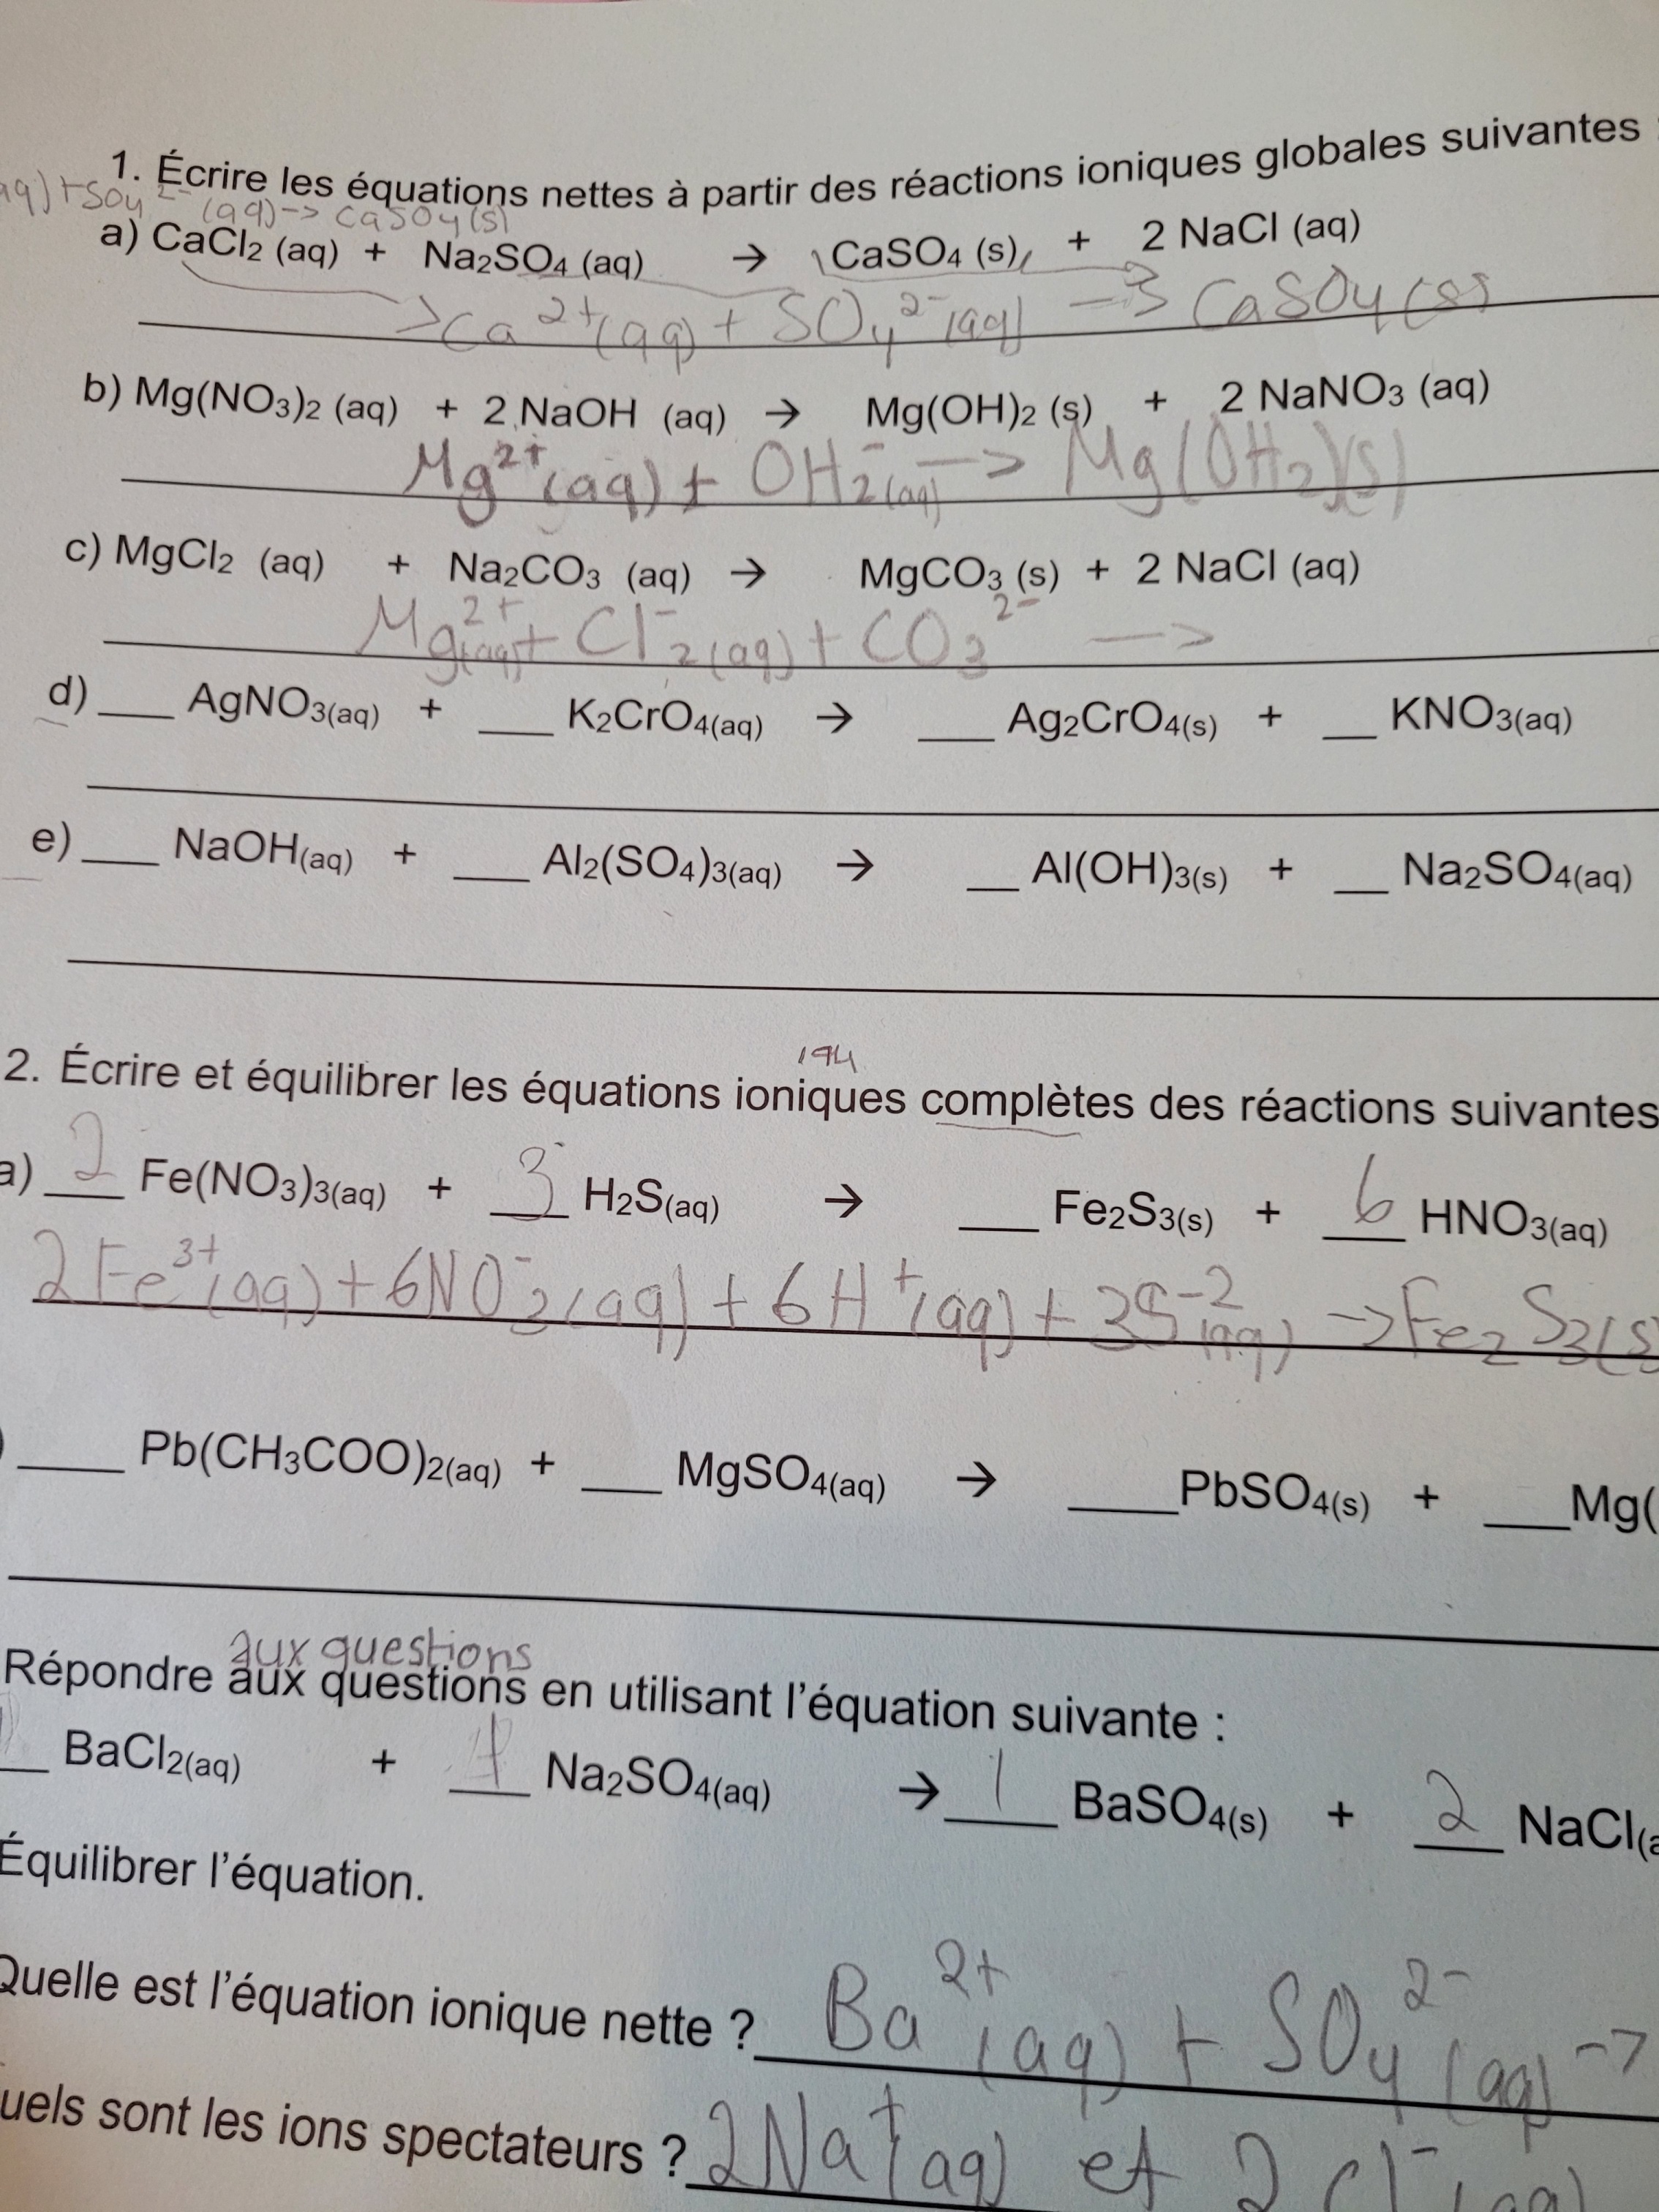 1. Écrire les équations nettes à partir des réactions ioniques globales suivantes :
aq) + SO4 2- (aq) -> CaSO4 (s)
a) CaCl2 (aq) + Na2SO4 (aq) → CaSO4 (s) + 2 NaCl (aq)
-> Ca 2+ (aq) + SO4 2- (aq) -> CaSO4 (s)
b) Mg(NO3)2 (aq) + 2 NaOH (aq) → Mg(OH)2 (s) + 2 NaNO3 (aq)
Mg2+ (aq) + OH2- (aq) -> Mg(OH2)(s)
c) MgCl2 (aq) + Na2CO3 (aq) → MgCO3 (s) + 2 NaCl (aq)
Mg2+ (aq) + Cl-2 (aq) + CO3 2- ->
d) ___ AgNO3(aq) + ___ K2CrO4(aq) → ___ Ag2CrO4(s) + __ KNO3(aq)
e) ___ NaOH(aq) + ___ Al2(SO4)3(aq) → __ Al(OH)3(s) + __ Na2SO4(aq)
194
2. Écrire et équilibrer les équations ioniques complètes des réactions suivantes
a) 2 Fe(NO3)3(aq) + 3 H2S(aq) → ___ Fe2S3(s) + 6 HNO3(aq)
2Fe3+ (aq) + 6NO-3 (aq) + 6H+ (aq) + 3S-2 (aq) -> Fe2S3(s
) ___ Pb(CH3COO)2(aq) + ___ MgSO4(aq) → ___PbSO4(s) + ___Mg(
aux questions
Répondre aux questions en utilisant l'équation suivante :
__ BaCl2(aq) + 1 Na2SO4(aq) → 1 BaSO4(s) + 2 NaCl(a
Équilibrer l'équation.
Quelle est l'équation ionique nette ? Ba 2+ (aq) + SO4 2- (aq) ->
uels sont les ions spectateurs ? 2Na+ (aq) et 2 Cl- (aq)